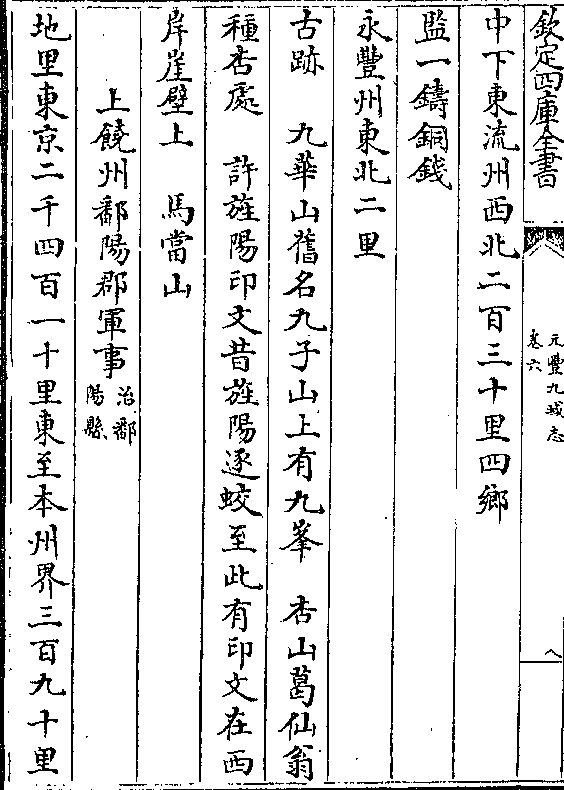 欽定四庫全書
元豐九域志
卷六
八
中下東流州西北二百三十里四鄉
監一鑄銅錢
永豐州東北二里
古跡　九華山舊名九子山上有九峯　杏山葛仙翁
種杏處　許旌陽印文昔旌陽逐蛟至此有印文在西
岸崖壁上　馬當山
上饒州鄱陽郡軍事治鄱陽縣
地里東京二千四百一十里東至本州界三百九十里